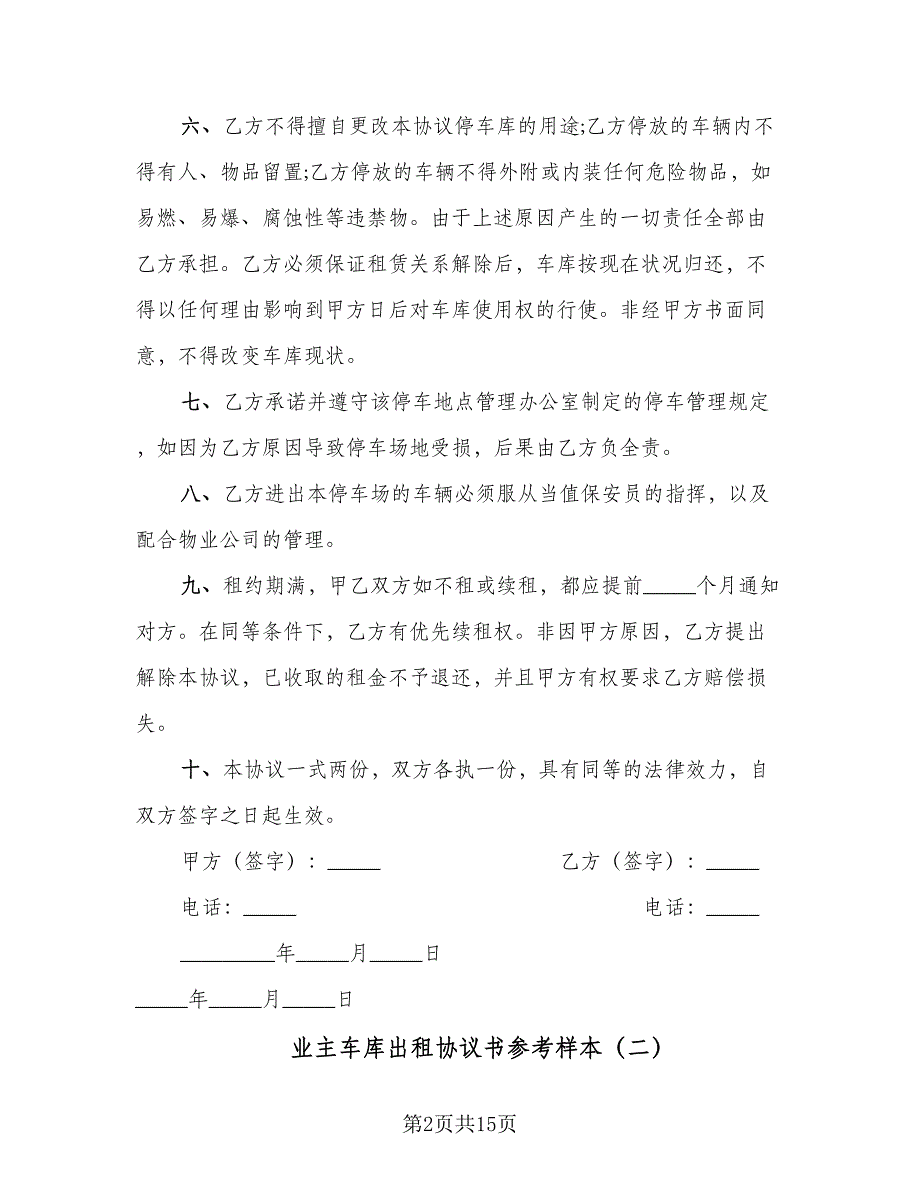 六、乙方不得擅自更改本协议停车库的用途;乙方停放的车辆内不
得有人、物品留置;乙方停放的车辆不得外附或内装任何危险物品，如
易燃、易爆、腐蚀性等违禁物。由于上述原因产生的一切责任全部由
乙方承担。乙方必须保证租赁关系解除后，车库按现在状况归还，不
得以任何理由影响到甲方日后对车库使用权的行使。非经甲方书面同
意，不得改变车库现状。
七、乙方承诺并遵守该停车地点管理办公室制定的停车管理规定
，如因为乙方原因导致停车场地受损，后果由乙方负全责。
八、乙方进出本停车场的车辆必须服从当值保安员的指挥，以及
配合物业公司的管理。
九、租约期满，甲乙双方如不租或续租，都应提前_____个月通知
对方。在同等条件下，乙方有优先续租权。非因甲方原因，乙方提出
解除本协议，已收取的租金不予退还，并且甲方有权要求乙方赔偿损
失。
十、本协议一式两份，双方各执一份，具有同等的法律效力，自
双方签字之日起生效。
甲方（签字）：_____ 乙方（签字）：_____
电话：_____ 电话：_____
_________年_____月_____日
_____年_____月_____日
业主车库出租协议书参考样本（二）
第2页共15页